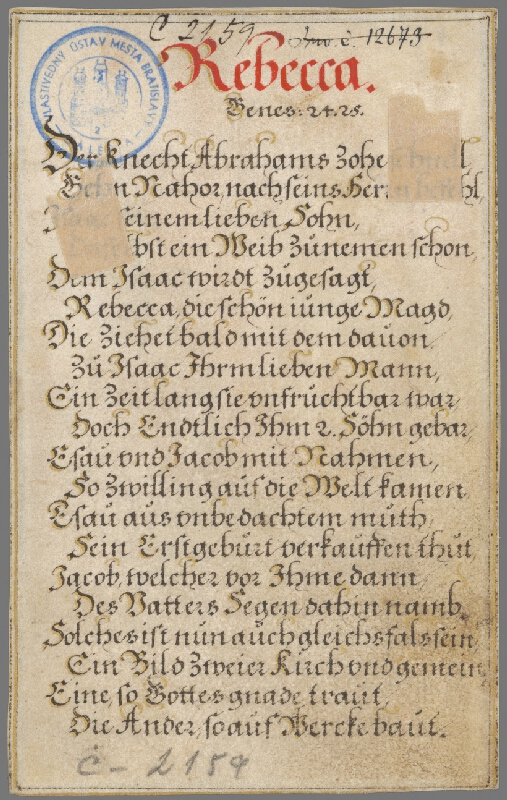 C 2159 Inv. č. 12673
VLASTIVEDNÝ ÚSTAV MESTA BRATISLAVY
2
Rebecca.
Genes: 24. 25.
Der Knecht Abrahams Zohe
Gehn Nahor nach seins Herrn
seinem lieben Sohn,
ein Weib zunemen schon,
Dem Isaac wirdt zugesagt,
Rebecca, die schön iunge Magd,
Die Ziehet bald mit dem dauon,
Zu Isaac Ihrm lieben Mann,
Ein Zeit lang sie vnfruchtbar war,
Doch Endtlich Ihm 2. Söhn gebar,
Esau vnd Jacob mit Nahmen,
So Zwilling auf die Welt kamen,
Esau aus vnbedachtem muth,
Sein Erstgeburt verkauffen thut,
Jacob, welcher vor Ihme dann,
Des Vatters Segen dahin namb,
Solches ist nun auch gleichsfals sein,
Ein Bild Zweier Kirch vnd gemein,
Eine, so Gottes gnade traut,
Die Ander, so auf Wercke baut.
C - 2159